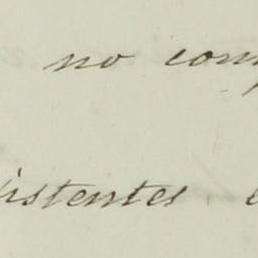 no comp
istentes